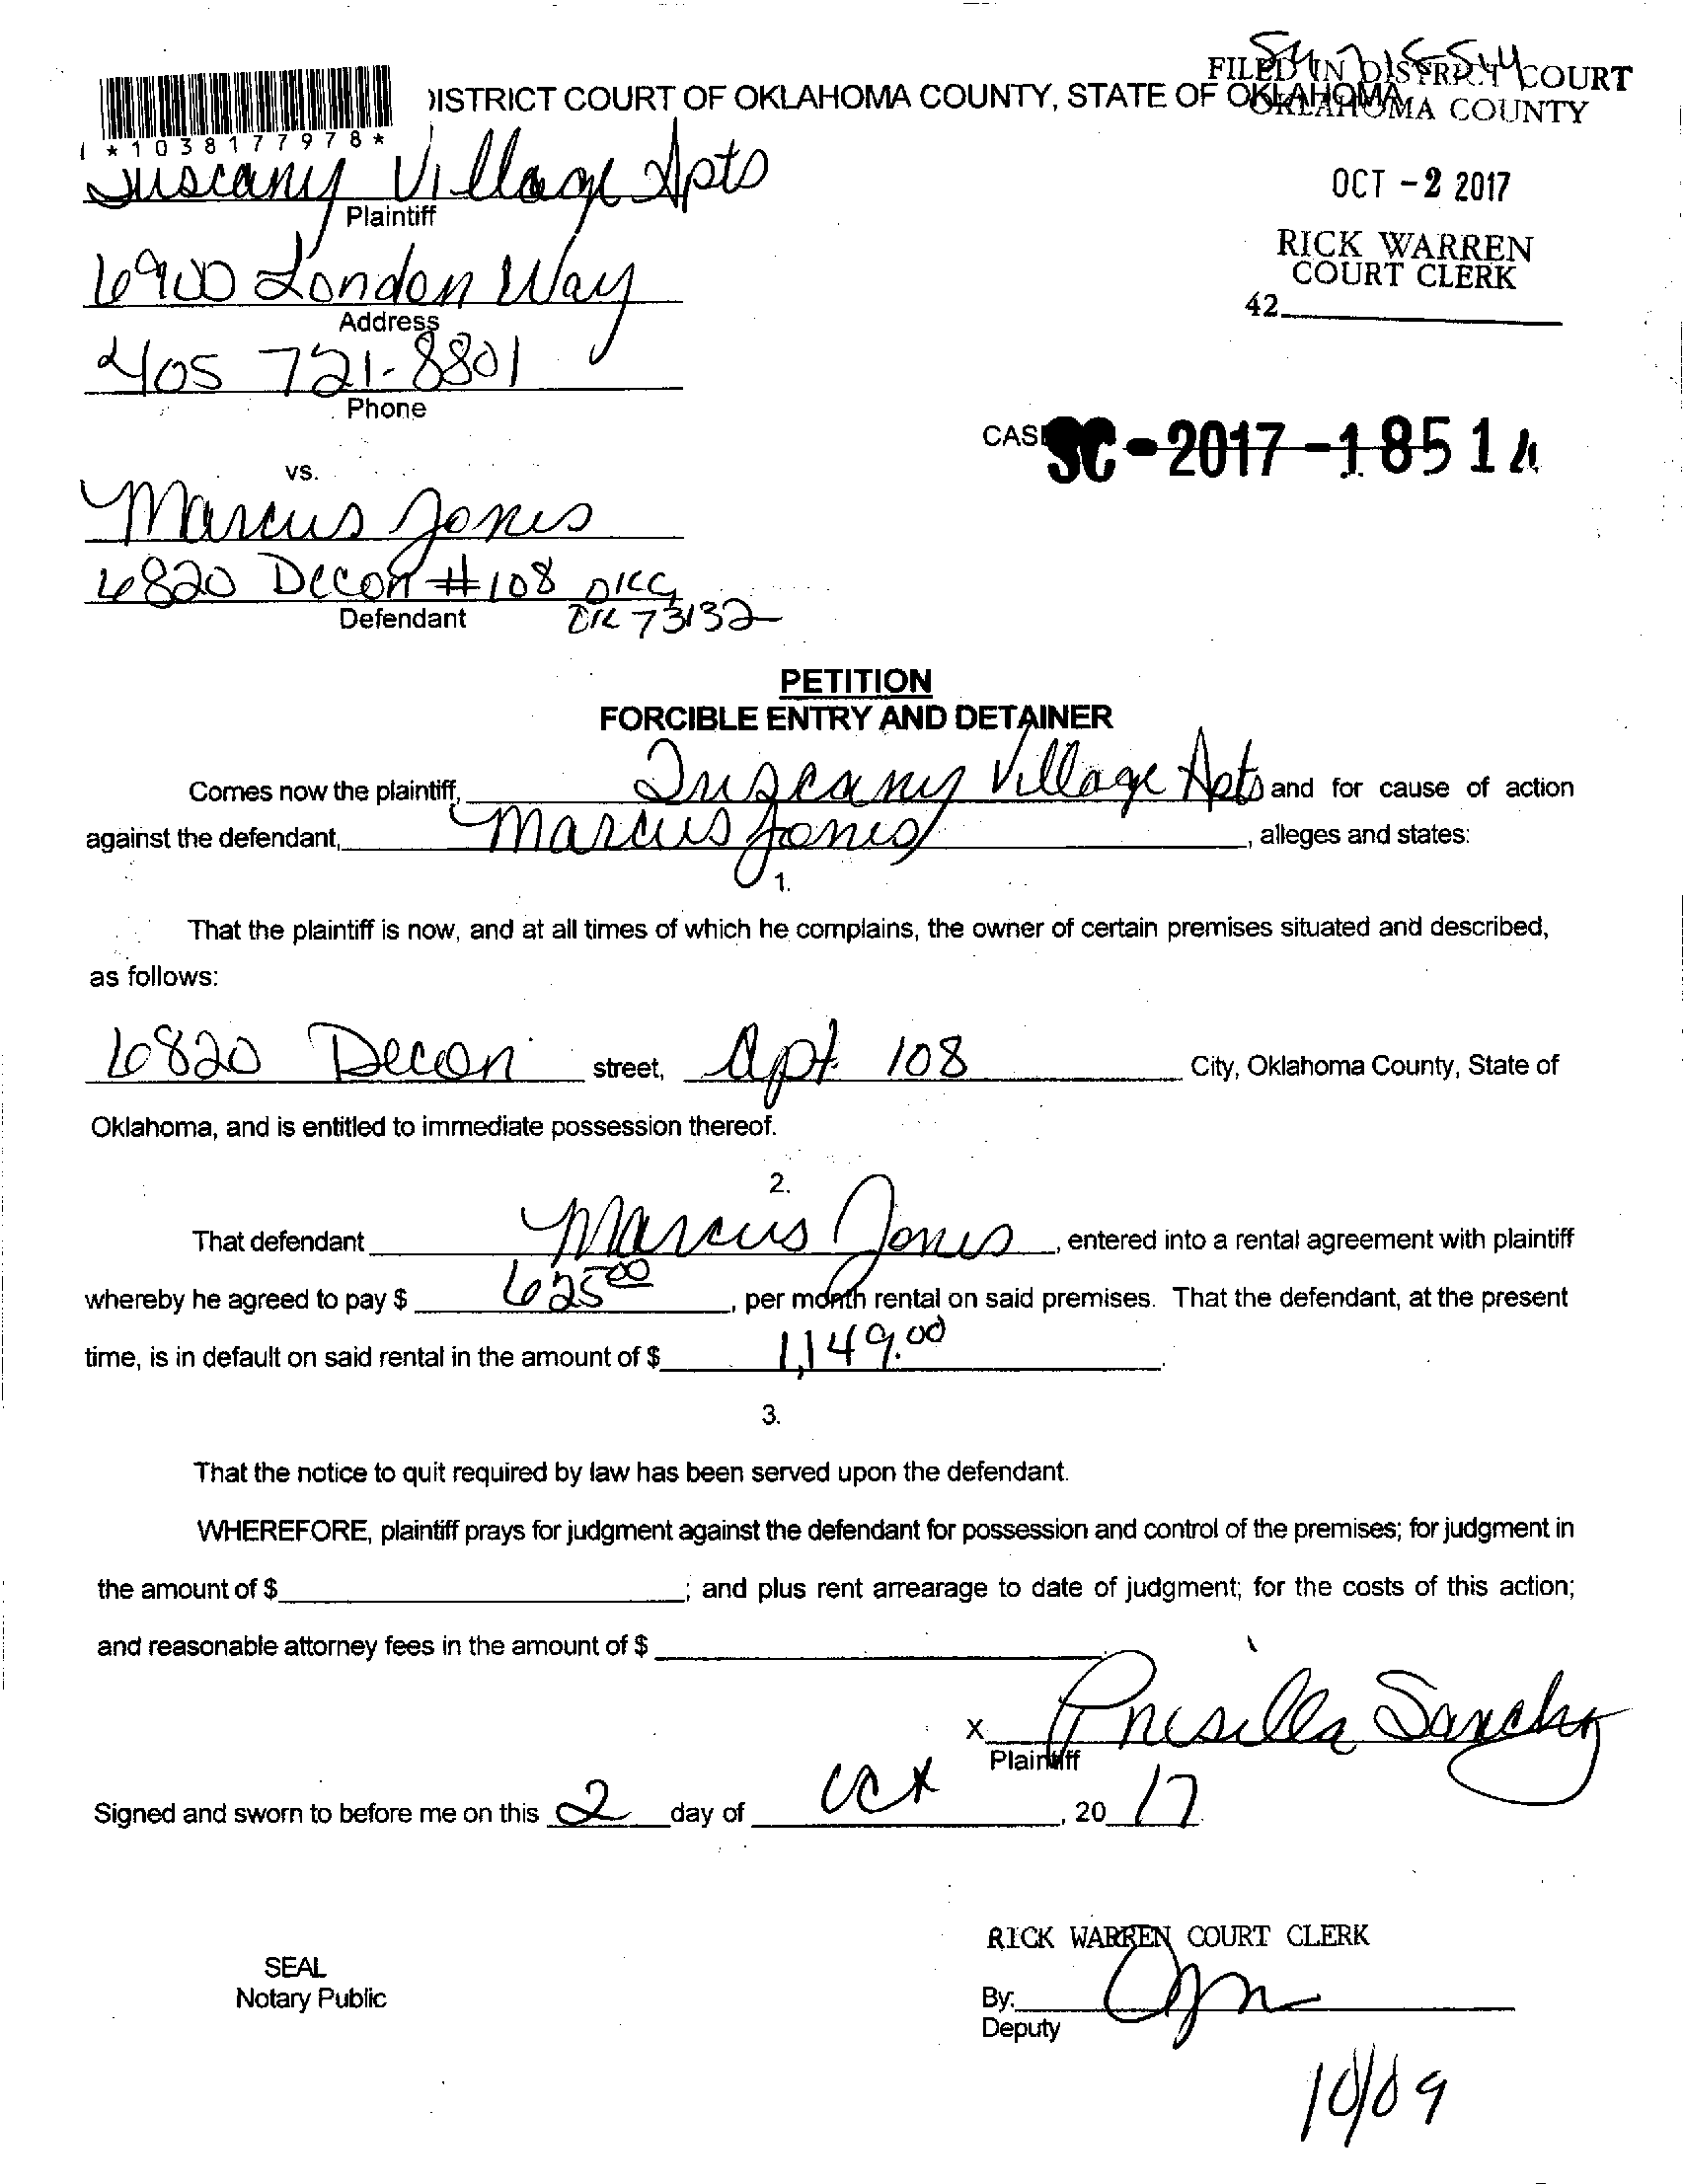 FILED IN DISTRICT COURT
DISTRICT COURT OF OKLAHOMA COUNTY, STATE OF OKLAHOMA
OKLAHOMA COUNTY
*1038177978*
Tuscany Village Apts
Plaintiff
OCT -2 2017
RICK WARREN
COURT CLERK
42
6900 London Way
Address
405 721-8801
Phone
CASE SC-2017-18514
vs.
Marcus Jones
6820 Decon #108 OKC,
OK 73132
Defendant
PETITION
FORCIBLE ENTRY AND DETAINER
Comes now the plaintiff, Tuscany Village Apts and for cause of action
against the defendant, Marcus Jones, alleges and states:
1.
That the plaintiff is now, and at all times of which he complains, the owner of certain premises situated and described,
as follows:
6820 Decon street, Apt. 108 City, Oklahoma County, State of
Oklahoma, and is entitled to immediate possession thereof.
2.
That defendant Marcus Jones, entered into a rental agreement with plaintiff
whereby he agreed to pay $ 625.00, per month rental on said premises. That the defendant, at the present
time, is in default on said rental in the amount of $ 1,149.00.
3.
That the notice to quit required by law has been served upon the defendant.
WHEREFORE, plaintiff prays for judgment against the defendant for possession and control of the premises; for judgment in
the amount of $ ; and plus rent arrearage to date of judgment; for the costs of this action;
and reasonable attorney fees in the amount of $
x Prisilla Sanchez
Plaintiff
Signed and sworn to before me on this 2 day of Oct, 20 17
RICK WARREN COURT CLERK
SEAL
Notary Public
By:
Deputy
10/09